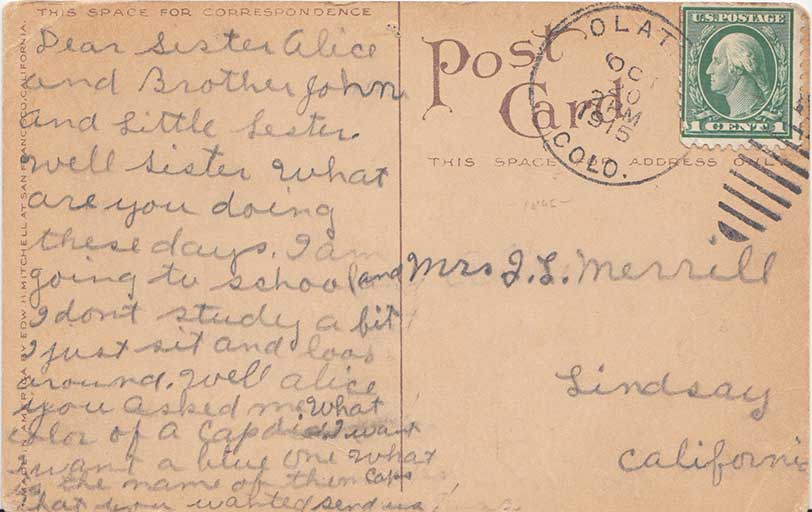 THIS SPACE FOR CORRESPONDENCE
Dear Sister Alice
and Brother John
and Little Lester
Well Sister What
are you doing
these days. I am
going to school and
I dont study a bit
I just sit and look
around. Well alice
you asked me What
color of a Cap did I want
I want a blue one What
is the name of them Caps
that you wanted send us
MADE IN AMERICA BY EDW. H. MITCHELL AT SAN FRANCISCO, CALIFORNIA.
Post
Card
THIS SPACE FOR ADDRESS ONLY
OLAT
OCT
20
AM
1915
COLO.
U.S. POSTAGE
1 CENT 1
Mrs J. L. Merrill
Lindsay
California